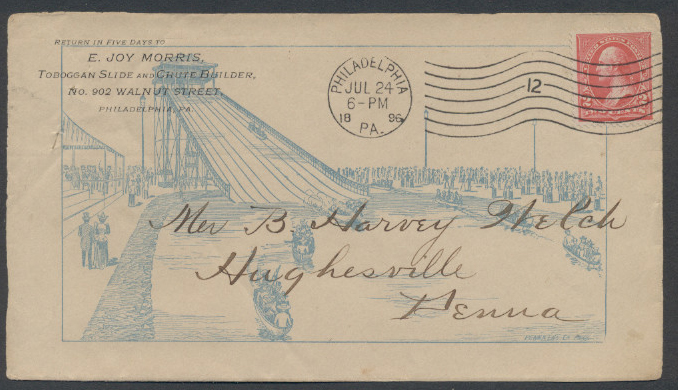 RETURN IN FIVE DAYS TO
E. JOY MORRIS,
TOBOGGAN SLIDE AND CHUTE BUILDER,
NO. 902 WALNUT STREET,
PHILADELPHIA, PA.
PHILADELPHIA
JUL 24
6-PM
18 96
PA.
12
B. Harvey Welch
Hughesville
Penna